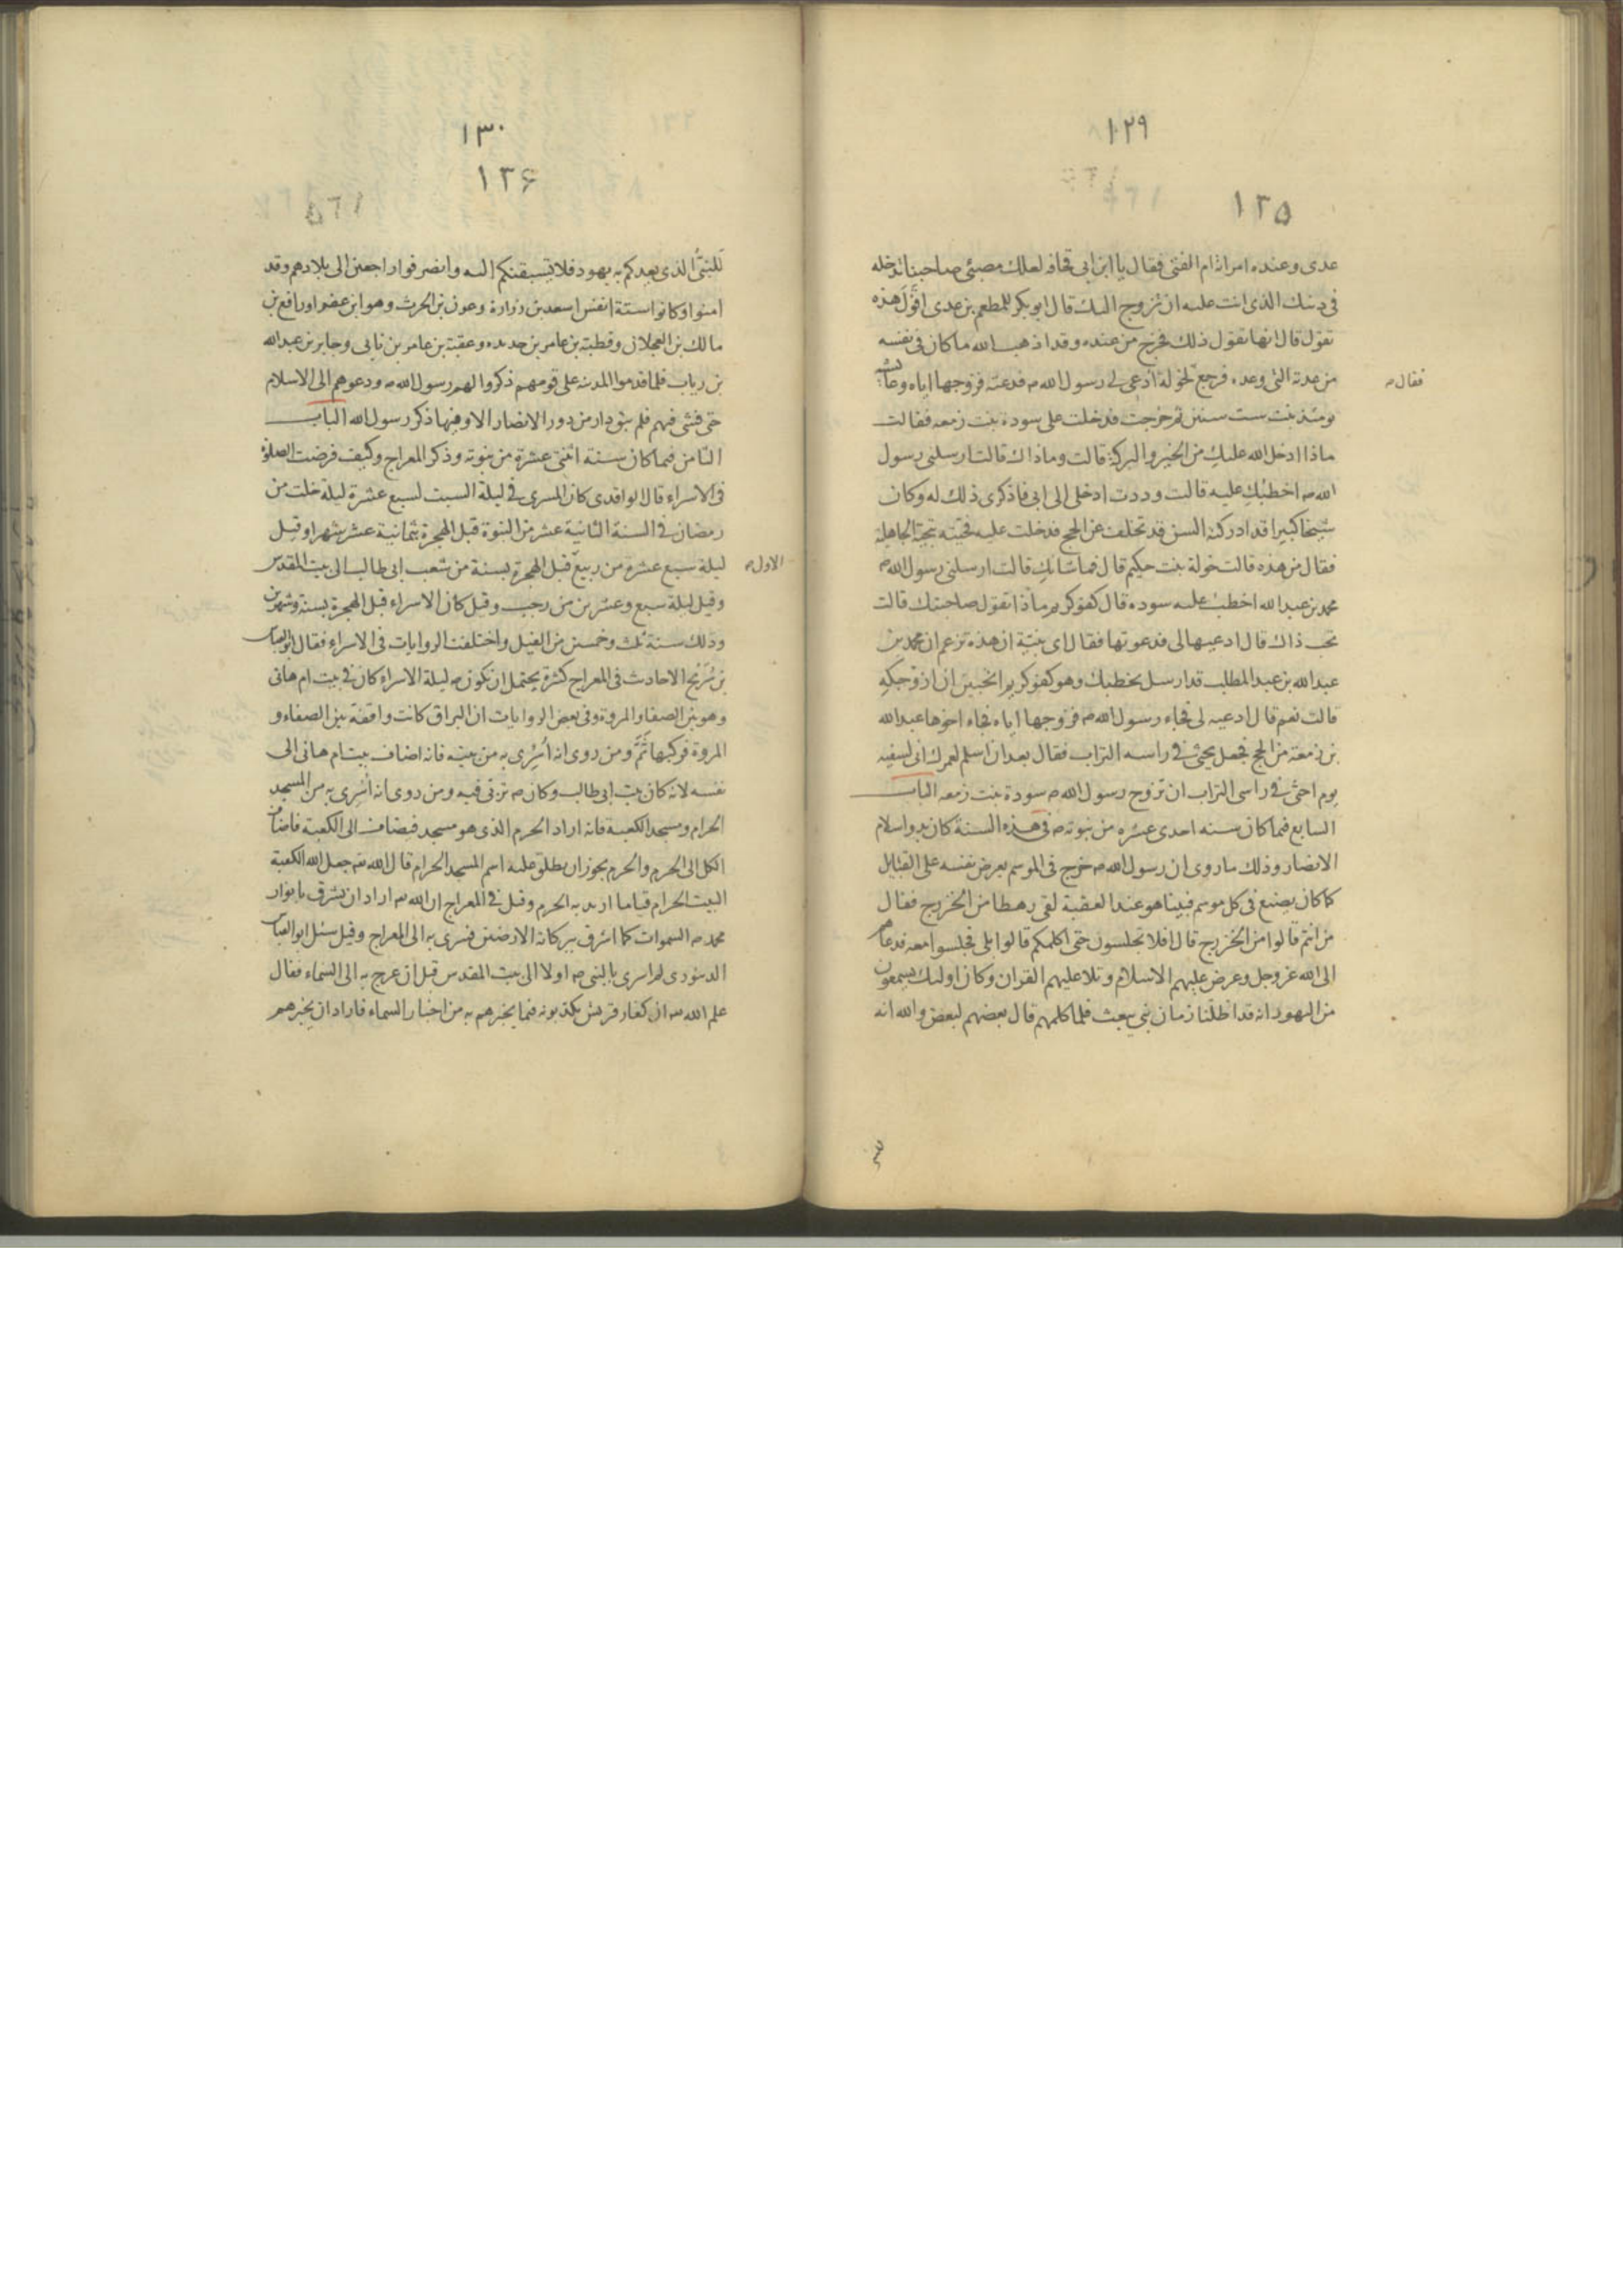 ١٢٩
١٢٥
عدى وعنده امراته ام الفتى فقال يا ابن ابى قحافه لعلك مصبئ صاحبنا تدخله
فى دينك الذى انت عليه ان تزوج اليك قال ابو بكر للمطعم بن عدى اقول هذه
تقول قال انها تقول ذلك فخرج من عنده وقد اذهب الله ما كان فى نفسه
من عدته التى وعده فرجع لخولة ادعى لى رسول الله ص فدعته فزوجها اياه وعائشة
فقال ص
يومئذ بنت ست سنين ثم خرجت فدخلت على سودة بنت زمعه فقالت
ماذا ادخل الله عليك من الخير والبركة قالت وما ذاك قالت ارسلنى رسول
الله ص اخطبك عليه قالت وددت ادخلى الى ابى فاذكرى ذلك له وكان
شيخا كبيرا قد ادركته السن قد تخلف عن الحج فدخلت عليه فحيته بتحية الجاهلية
فقال من هذه قالت خولة بنت حكيم قال فما شانك قالت ارسلنى رسول الله ص
محمد بن عبد الله اخطب عليه سوده قال كفو كريم ماذا تقول صاحبتك قالت
تحب ذاك قال ادعيها الى فدعوتها فقال اى بنية ان هذه تزعم ان محمد بن
عبد الله بن عبد المطلب قد ارسل يخطبك وهو كفو كريم اتحبين ان ازوجكه
قالت نعم قال ادعيه لى فجاء رسول الله ص فزوجها اياه فجاء اخوها عبد الله
بن زمعة من الحج فجعل يحثى فى راسه التراب فقال بعد ان اسلم لعمرك انى لسفيه
يوم احثى فى راسى التراب ان تزوج رسول الله ص سودة بنت زمعه الباب
السابع فيما كان سنه احدى عشره من نبوته ص فى هذه السنة كان بدو اسلام
الانصار وذلك ما روى ان رسول الله ص خرج فى الموسم يعرض نفسه على القبايل
كما كان يصنع فى كل موسم فبينا هو عند العقبة لقى رهطا من الخزرج فقال
من انتم قالوا من الخزرج قال افلا تجلسون حتى اكلمكم قالوا بلى فجلسوا معه فدعاهم
الى الله عز وجل وعرض عليهم الاسلام وتلا عليهم القران وكان اوليك يسمعون
من اليهود انه قد اظلنا زمان نبى يبعث فلما كلمهم قال بعضهم لبعض والله انه
١٣٠
١٢۶
للنبى الذى يعدكم به يهود فلا يسبقنكم اليه وانصرفوا راجعين الى بلادهم وقد
امنوا وكانوا ستة انفس اسعد بن زرارة وعوف بن الحرث وهو ابن عفرا ورافع بن
مالك بن العجلان وقطبة بن عامر بن حديده وعقبة بن عامر بن نابى وجابر بن عبد الله
بن رياب فلما قدموا المدينه على قومهم ذكروا لهم رسول الله ص ودعوهم الى الاسلام
حتى فشى فيهم فلم يبق دار من دور الانصار الا وفيها ذكر رسول الله الباب
الثامن فيما كان سنة اثنتى عشرة من نبوته وذكر المعراج وكيف فرضت الصلوة
فى الاسراء قال الواقدى كان المسرى فى ليلة السبت لسبع عشرة ليلة خلت من
رمضان فى السنة الثانية عشر من النبوة قبل الهجرة بثمانية عشر شهرا وقيل
ليلة سبع عشرة من ربيع قبل الهجرة بسنة من شعب ابى طالب الى بيت المقدس
الاول ص
وقيل ليلة سبع وعشرين من رجب وقيل كان الاسراء قبل الهجرة بسنة وشهرين
وذلك سنة ثلث وخمسين من الفيل واختلفت الروايات فى الاسراء فقال ابو العباس
بن سريج الاحاديث فى المعراج كثيرة يحتمل ان تكون ص ليلة الاسراء كان فى بيت ام هانى
وهو بين الصفا والمروة وفى بعض الروايات ان البراق كانت واقفة بين الصفا و
المروة فركبها ثَمَّ ومن روى انه اُسْرِى به من بيته فانه اضاف بيت ام هانى الى
نفسه لانه كان بيت ابى طالب وكان ص تربى فيه ومن روى انه اُسْرِى به من المسجد
الحرام ومسجد الكعبة فانه اراد الحرم الذى هو مسجد فيضاف الى الكعبة فاضاف
الكل الى الحرم والحرم يجوز ان يطلق عليه اسم المسجد الحرام قال الله تعه جعل الله الكعبة
البيت الحرام قياما اريد به الحرم وقيل فى المعراج ان الله تعه اراد ان يشرف بانوار
محمد ص السموات كما اشرف ببركاته الارضين فسرى به الى المعراج وقيل سئل ابو العباس
الدينورى لم اسرى بالنبى ص اولا الى بيت المقدس قبل ان عرج به الى السماء فقال
علم الله تعه ان كفار قريش يكذبونه فيما يخبرهم به من اخبار السماء فاراد ان يخبرهم